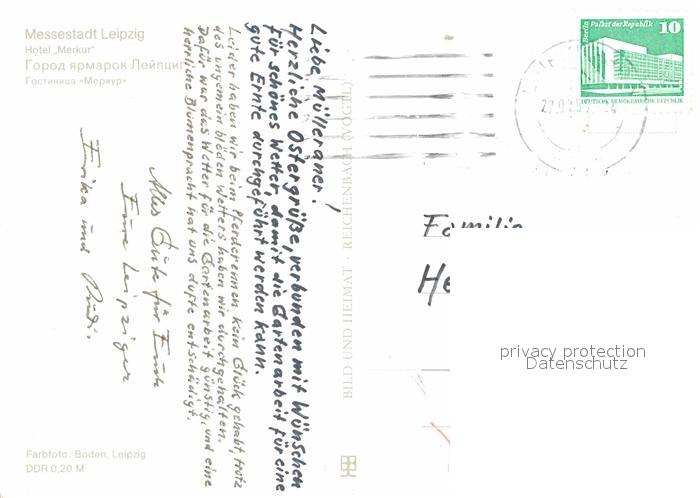 Messestadt Leipzig
Hotel „Merkur"
Город ярмарок Лейпциг
Гостиница «Меркур»
Liebe Mülleraner!
Herzliche Ostergrüße, verbunden mit Wünschen
für schönes Wetter, damit die Gartenarbeit für eine
gute Ernte durchgeführt werden kann.
Leider haben wir beim Pferderennen kein Glück gehabt, trotz
des ungemein blöden Wetters haben wir durchgehalten.
Dafür war das Wetter für die Gartenarbeit günstig, und eine
herrliche Blumenpracht hat uns dufte entschädigt.
Alles Gute für Euch
Eure Leipziger
Erika und Rudi.
Farbfoto: Boden, Leipzig
DDR 0,20 M
BILD UND HEIMAT · REICHENBACH (VOGTL)
Berlin Palast der Republik
10
DEUTSCHE DEMOKRATISCHE REPUBLIK
Familie
He
privacy protection
Datenschutz